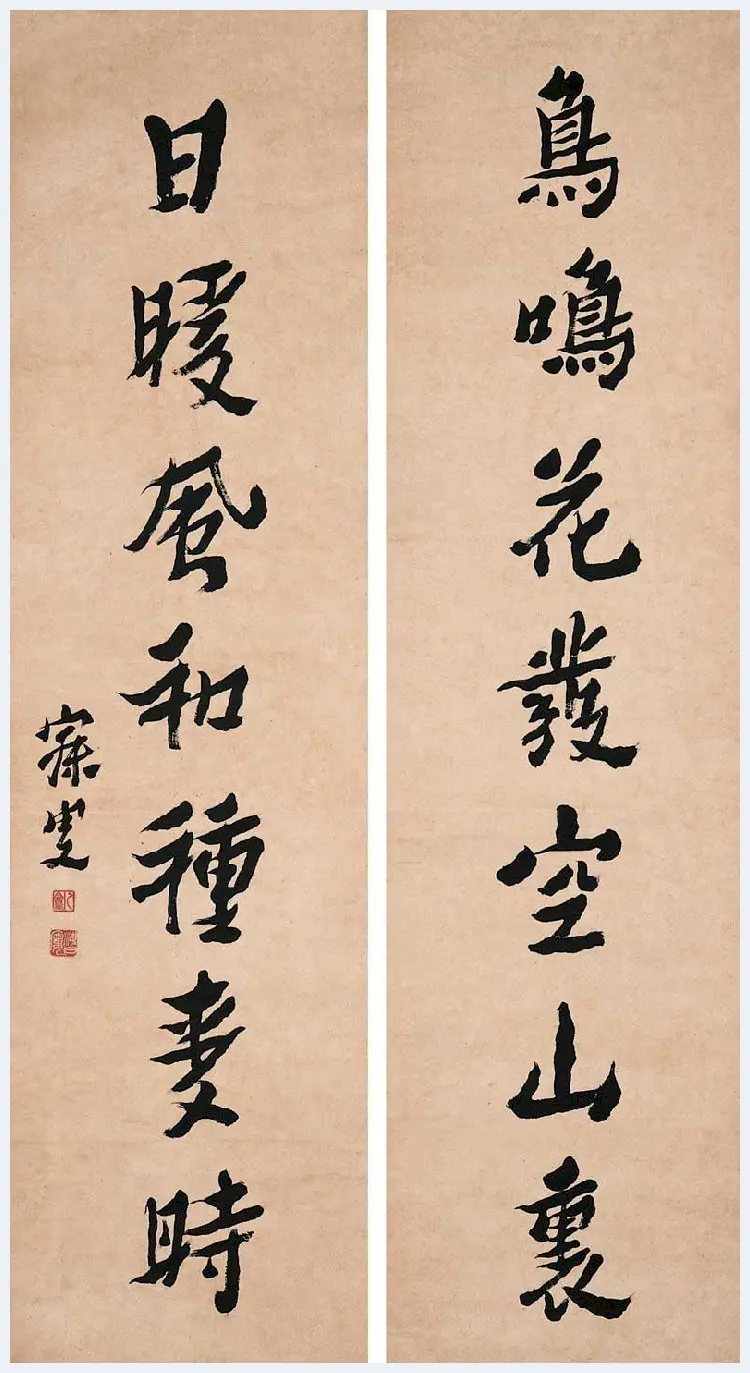 鳥鳴花發空山裏
日暖風和種麥時
寐叟